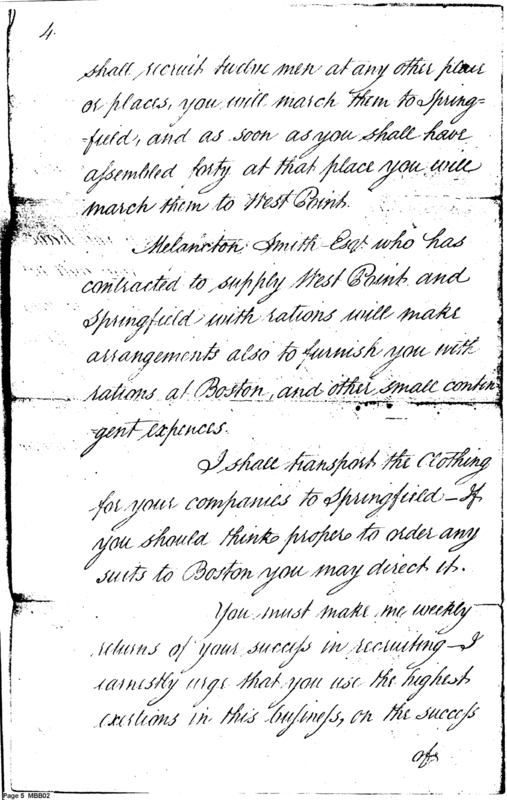 4.
shall recruit twelve men at any other place
or places, you will march them to Spring=
=field, and as soon as you shall have
assembled forty at that place you will
march them to West Point.
Melancton Smith Esqr who has
contracted to supply West Point and
Springfield with rations will make
arrangements also to furnish you with
rations at Boston, and other small contin
gent expences.
I shall transport the Clothing
for your companies to Springfield – If
you should think proper to order any
suits to Boston you may direct it.
You must make me weekly
returns of your success in recruiting – I
earnestly urge that you use the highest
exertions in this business, on the success
of
Page 5 MBB02